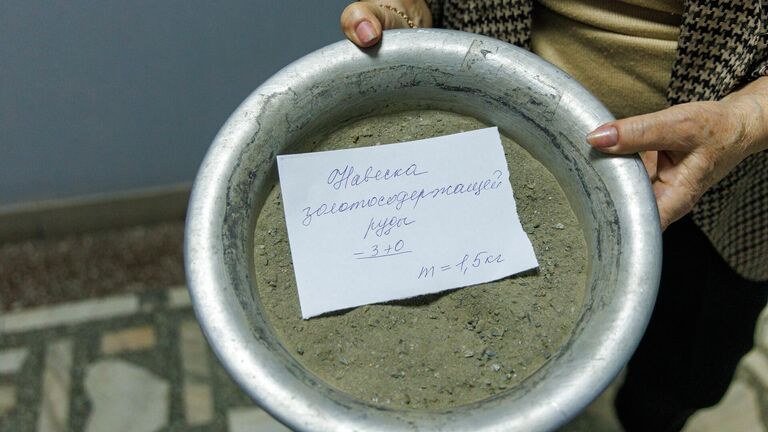 Навеска
золотосодержащей
руды
-3+0
m = 1,5 кг